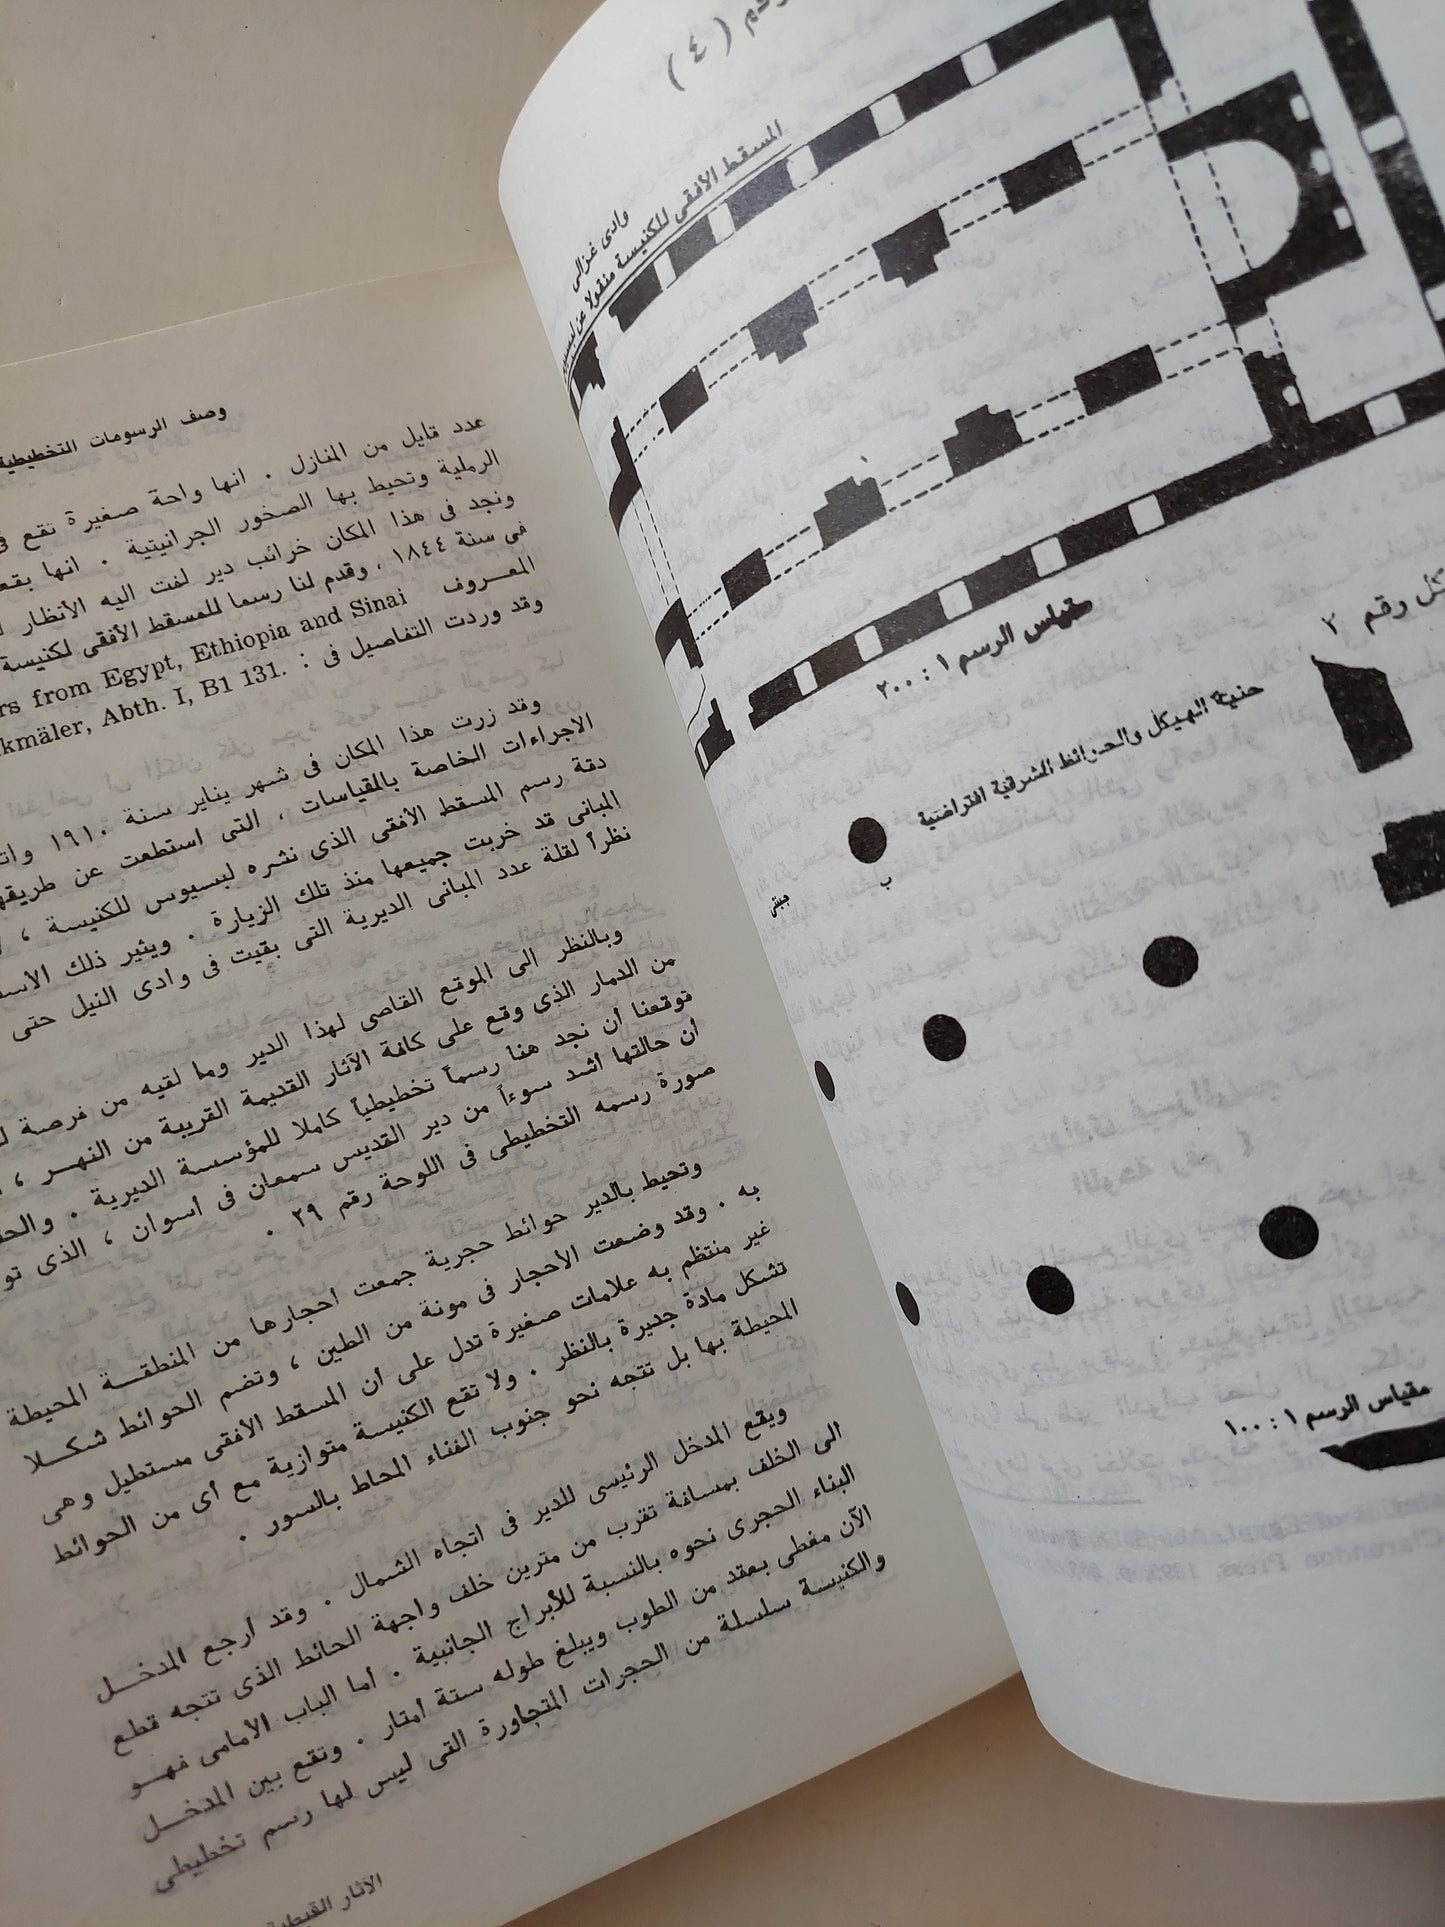 وصف الرسومات التخطيطية
عدد قليل من المنازل . انها واحة صغيرة تقع
الرملية وتحيط بها الصخور الجرانيتية . انها
ونجد فى هذا المكان خرائب دير لفت اليه الأنظار
فى سنة ١٨٤٤ ، وقدم لنا رسما للمسقط الأفقى لكنيسة
المعروف rs from Egypt, Ethiopia and Sinai
وقد وردت التفاصيل فى : kmäler, Abth. I, B1 131.
وقد زرت هذا المكان فى شهر يناير سنة ١٩١٠
الاجراءات الخاصة بالمقياسات ، التى استطعت عن
دقة رسم المسقط الأفقى الذى نشره لبسيوس للكنيسة ،
المبانى قد خربت جميعها منذ تلك الزيارة . ويثير ذلك
نظراً لقلة عدد المبانى الديرية التى بقيت فى وادى النيل حتى
وبالنظر الى الموقع القاصى لهذا الدير وما لقيه من فرصة
من الدمار الذى وقع على كافة الآثار القديمة القريبة من النهر ،
توقعنا أن نجد هنا رسماً تخطيطياً كاملا للمؤسسة الديرية .
أن حالتها اشد سوءاً من دير القديس سمعان فى أسوان ، الذى
صورة رسمه التخطيطى فى اللوحة رقم ٢٩ .
وتحيط بالدير حوائط حجرية جمعت احجارها من المنطقة المحيطة
به . وقد وضعت الأحجار فى مونة من الطين ، وتضم الحوائط شكلا
غير منتظم به علامات صغيرة تدل على ان المسقط الأفقى مستطيل وهى
تشكل مادة جديرة بالنظر . ولا تقع الكنيسة متوازية مع أى من الحوائط
المحيطة بها بل تتجه نحو جنوب الفناء المحاط بالسور .
ويقع المدخل الرئيسى للدير فى اتجاه الشمال . وقد ارجع المدخل
الى الخلف بمسافة تقرب من مترين خلف واجهة الحائط الذى تتجه قطع
البناء الحجرى نحوه بالنسبة للأبراج الجانبية . أما الباب الأمامى فهو
الآن مغطى بعقد من الطوب ويبلغ طوله ستة أمتار . وتقع بين المدخل
والكنيسة سلسلة من الحجرات المتجاورة التى ليس لها رسم تخطيطى
الآثار القبطية
( ٤ )
وادى غزالى
المسقط الأفقى للكنيسة منقولا عن
مقياس الرسم ١ : ٢٠٠
رقم ٢
حنية الهيكل والحوائط الشرقية افتراضية
ب
مقياس الرسم ١ : ١٠٠